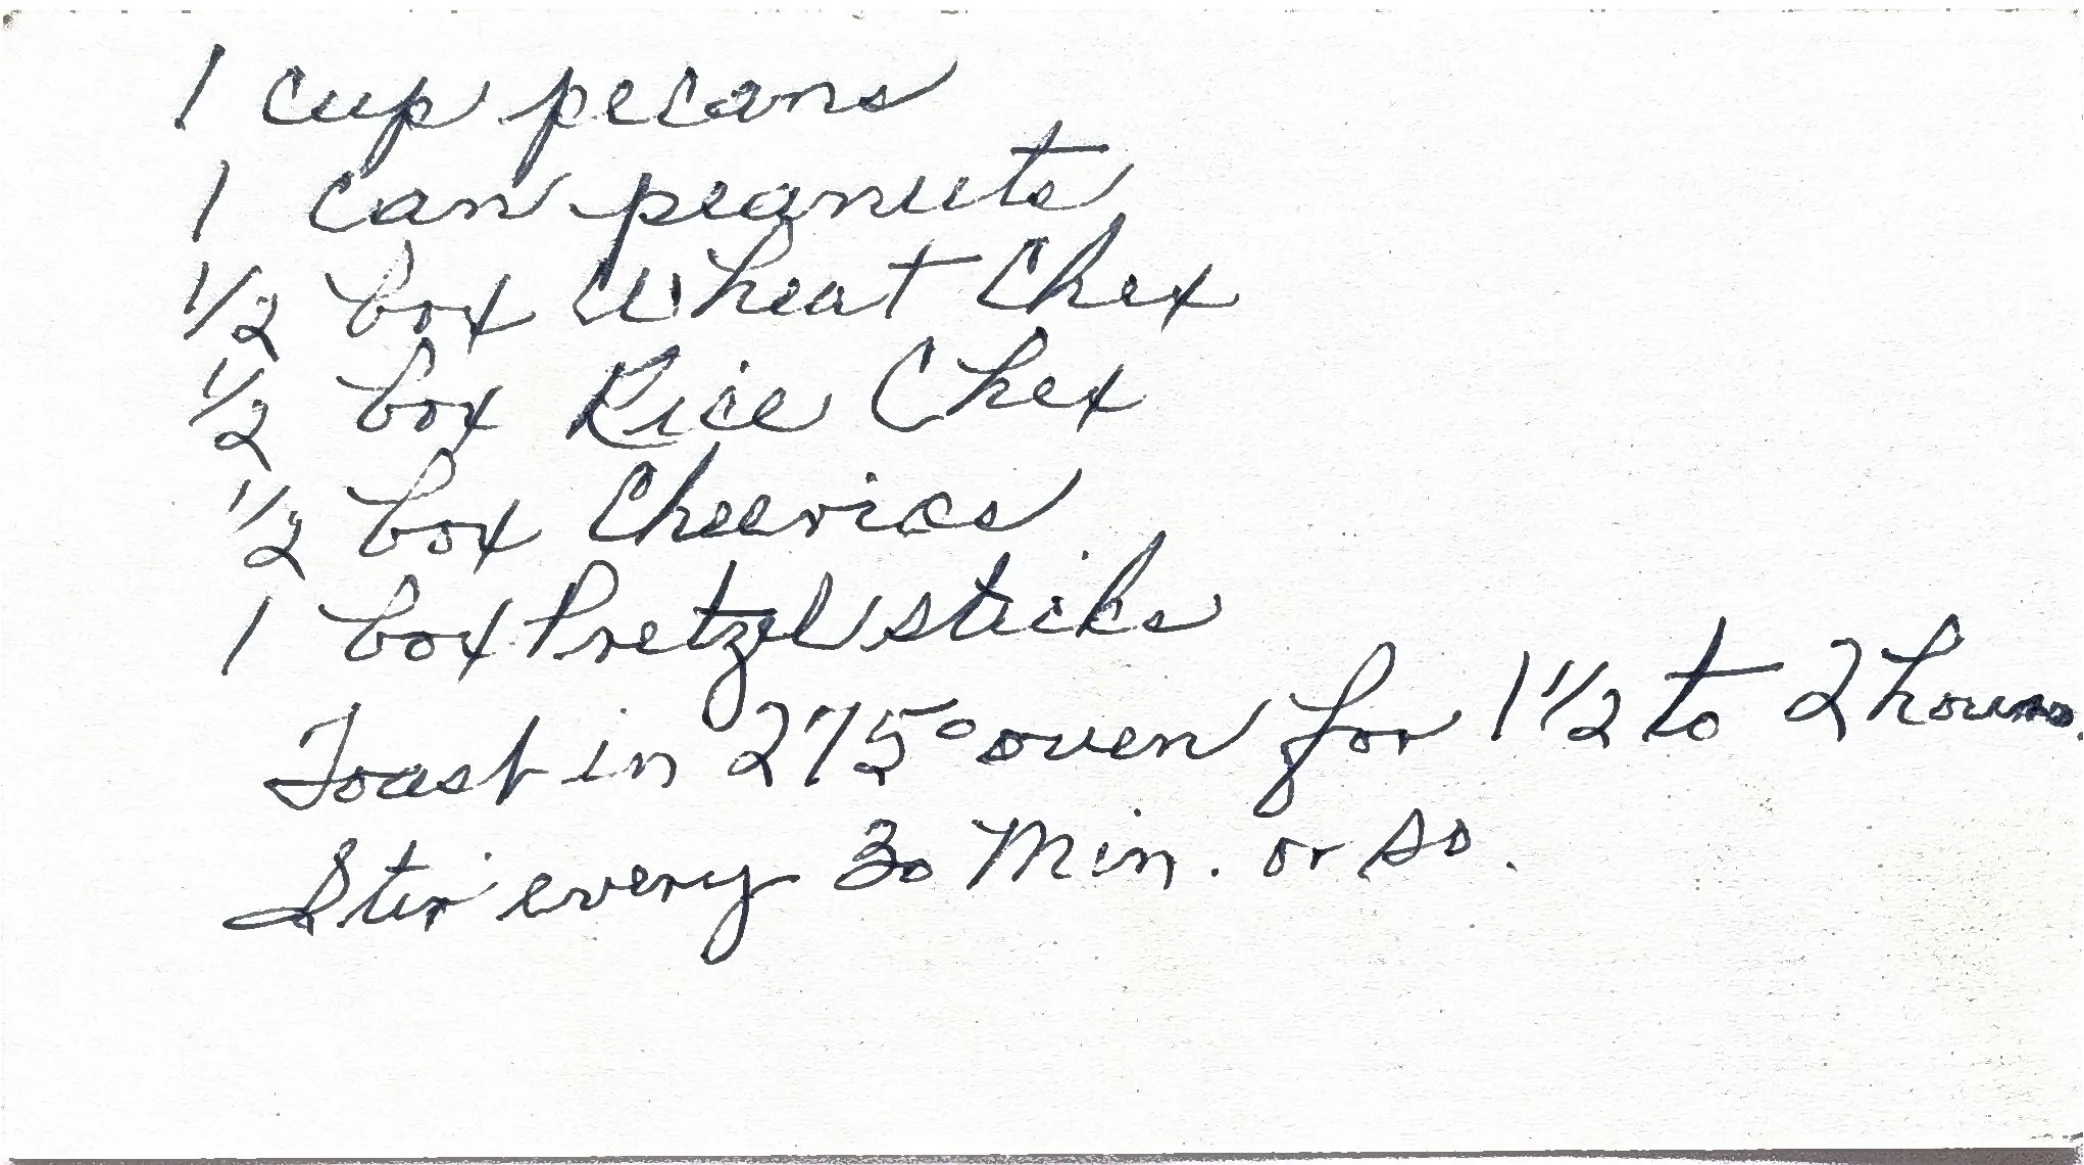 1 cup pecans
1 can peanuts
1/2 box Wheat Chex
1/2 box Rice Chex
1/2 box Cheerios
1 box Pretzel sticks
Toast in 275° oven for 1 1/2 to 2 hours.
Stir every 30 Min. or so.